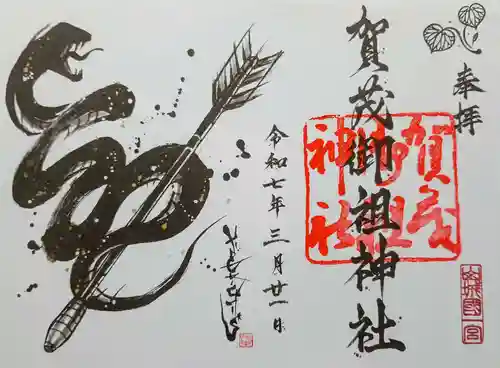 奉拝
賀茂御祖神社
賀茂御祖神社
山城國一宮
令和七年三月廿一日